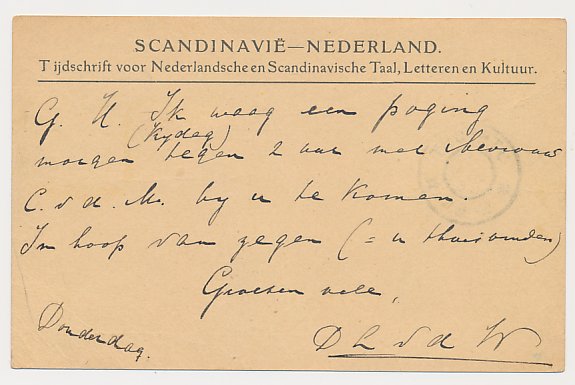 SCANDINAVIË—NEDERLAND.
Tijdschrift voor Nederlandsche en Scandinavische Taal, Letteren en Kultuur.
G. H. Ik waag een poging
(Vrydag)
morgen tegen 2 uur met Mevrouw
C. v d. M. by u te komen.
In hoop van zegen (= u thuisvinden)
Groeten vele,
Donderdag.
D L v d W